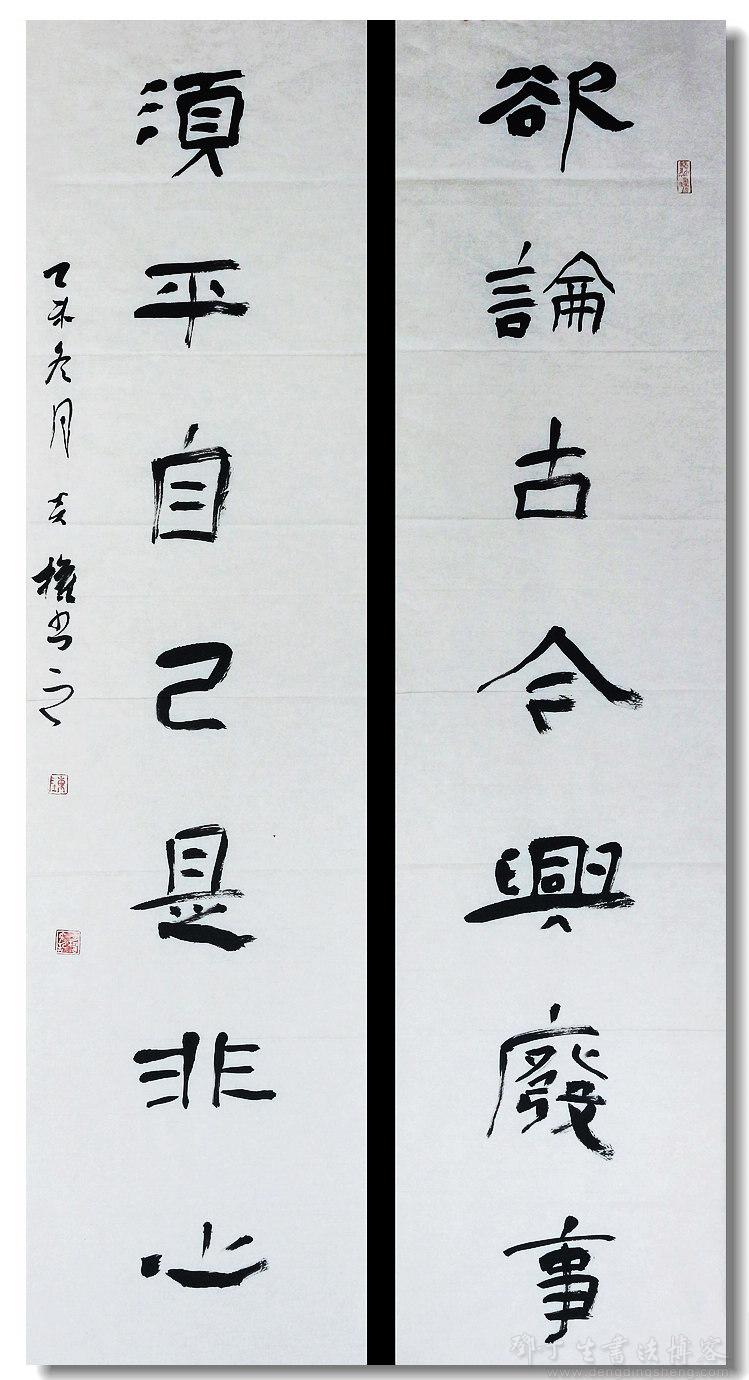 欲論古今興廢事
須平自己是非心
乙未冬月 權书之
鄧丁生書法博客
www.dengdingsheng.com